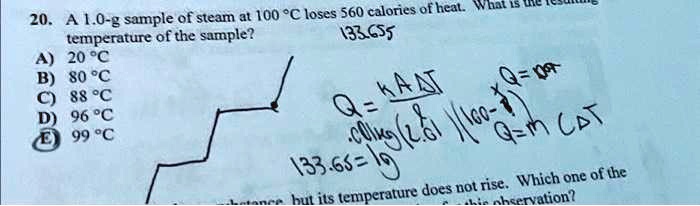 20. A 1.0-g sample of steam at 100 °C loses 560 calories of heat. What is the resulting
temperature of the sample?
133.655
A) 20 °C
B) 80 °C
C) 88 °C
D) 96 °C
E) 99 °C
Q = kAΔT
Q=
(100-
Q=m CΔT
133.65= 1g
but its temperature does not rise. Which one of the
observation?